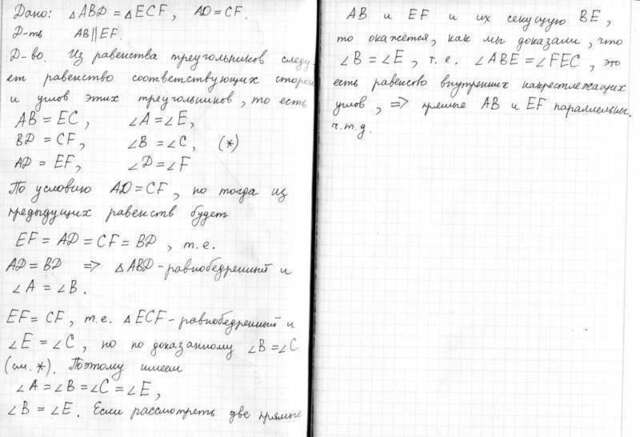 Дано: △ABD = △ECF, AD = CF.
Д-ть AB||EF.
Д-во. Из равенства треугольников следу-
ет равенство соответствующих сторон
и углов этих треугольников, то есть
AB = EC, ∠A = ∠E,
BD = CF, ∠B = ∠C, (*)
AD = EF, ∠D = ∠F
По условию AD = CF, но тогда из
предыдущих равенств будет
EF = AD = CF = BD, т.е.
AD = BD => △ABD - равнобедренный и
∠A = ∠B.
EF = CF, т.е. △ECF - равнобедренный и
∠E = ∠C, но по доказанному ∠B = ∠C
(см. *). Поэтому имеем
∠A = ∠B = ∠C = ∠E,
∠B = ∠E. Если рассмотреть две прямые
AB и EF и их секущую BE,
то окажется, как мы доказали, что
∠B = ∠E, т.е. ∠ABE = ∠FEC, это
есть равенство внутренних накрестлежащих
углов, => прямые AB и EF параллельны.
ч.т.д.